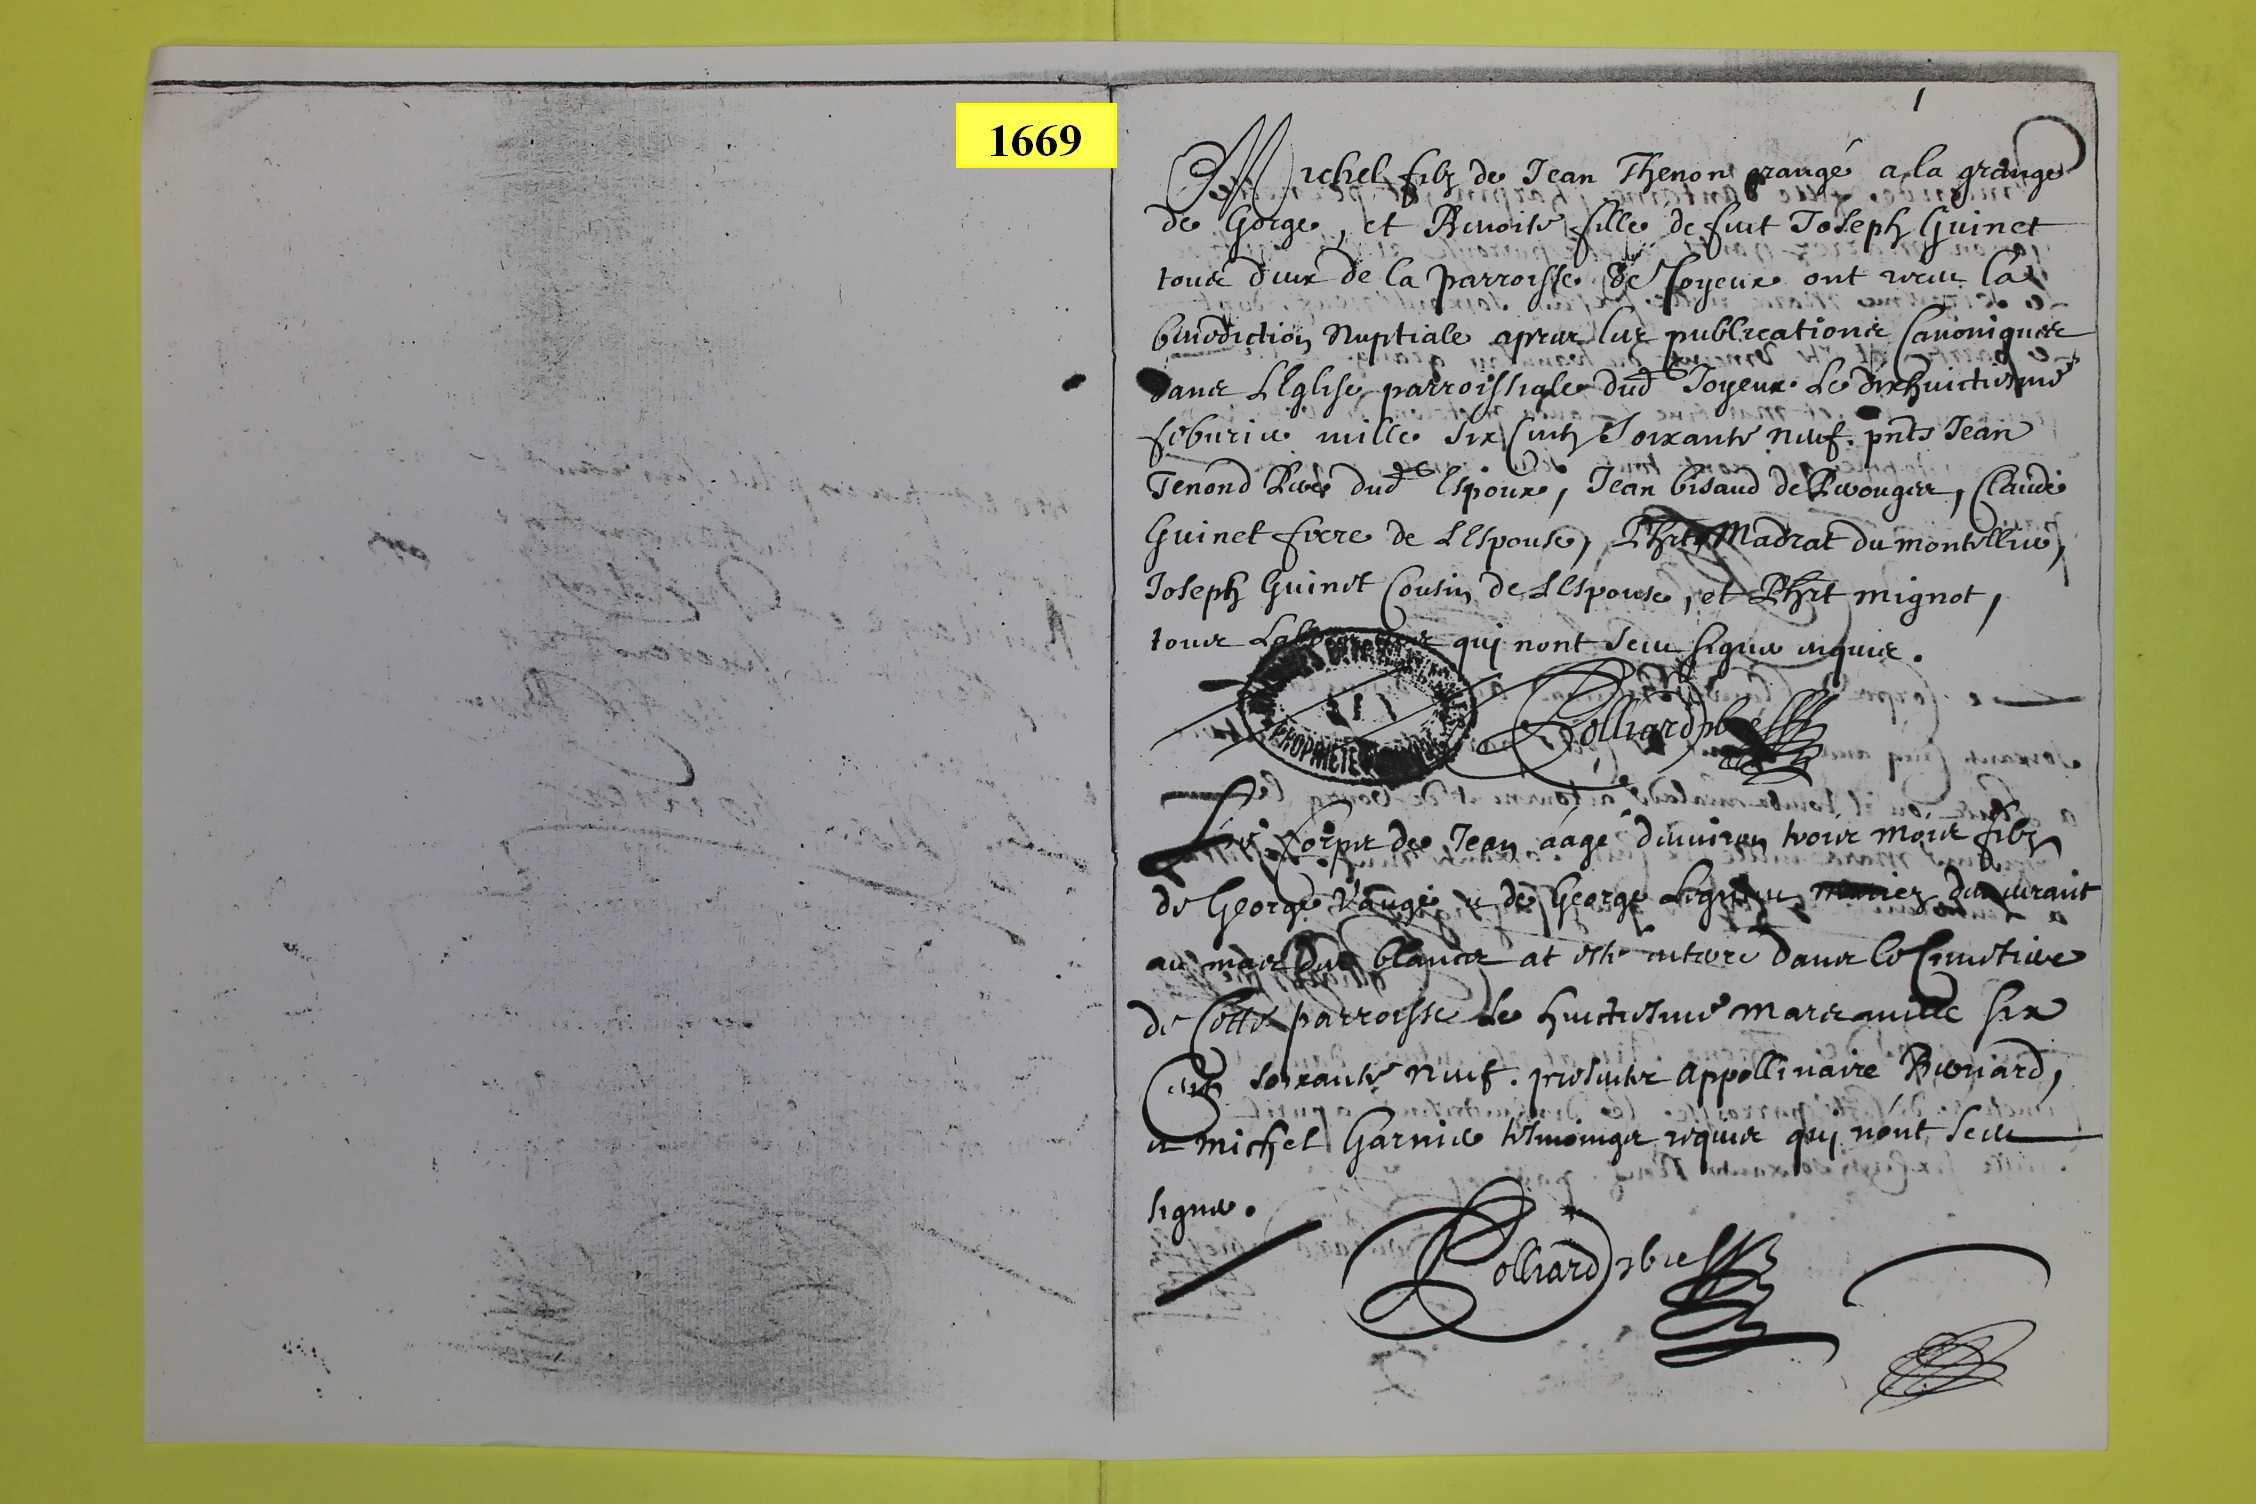 1669
1
Michel filz de Jean Thenon grangé a la grange
de Gorge, et Benoite fille de fut Joseph Guinet
tous deux de la parroisse de Joyeux ont receu la
benediction Nuptiale apres les publications Canoniques
dans L'Eglise parroissiale dud Joyeux Le dixhuictiesme
feburier mille six cents soixante neuf. pnts Jean
Tenond Pere dud Espoux, Jean bisaud de Perouges, Claude
Guinet frere de L'Espouse, Phrt Madrat du montellier,
Joseph Guinet Cousin de L'Espouse, et Phrt mignot,
tous qui nont sceu signer enquis.
PROPRIETE
Rolliard pbre
Le Corps de Jean áagé d'environ trois mois filz
de George Vaugé et de George demeurant
au mas des blancs at esté enterré dans le Cimetiere
de Cette parroisse Le huictiesme mars mille six
Cents soixante neuf. presents Appollinaire Bernard,
et michel Garnier tesmoinges requis qui nont sceu
signer.
Rolliard pbre